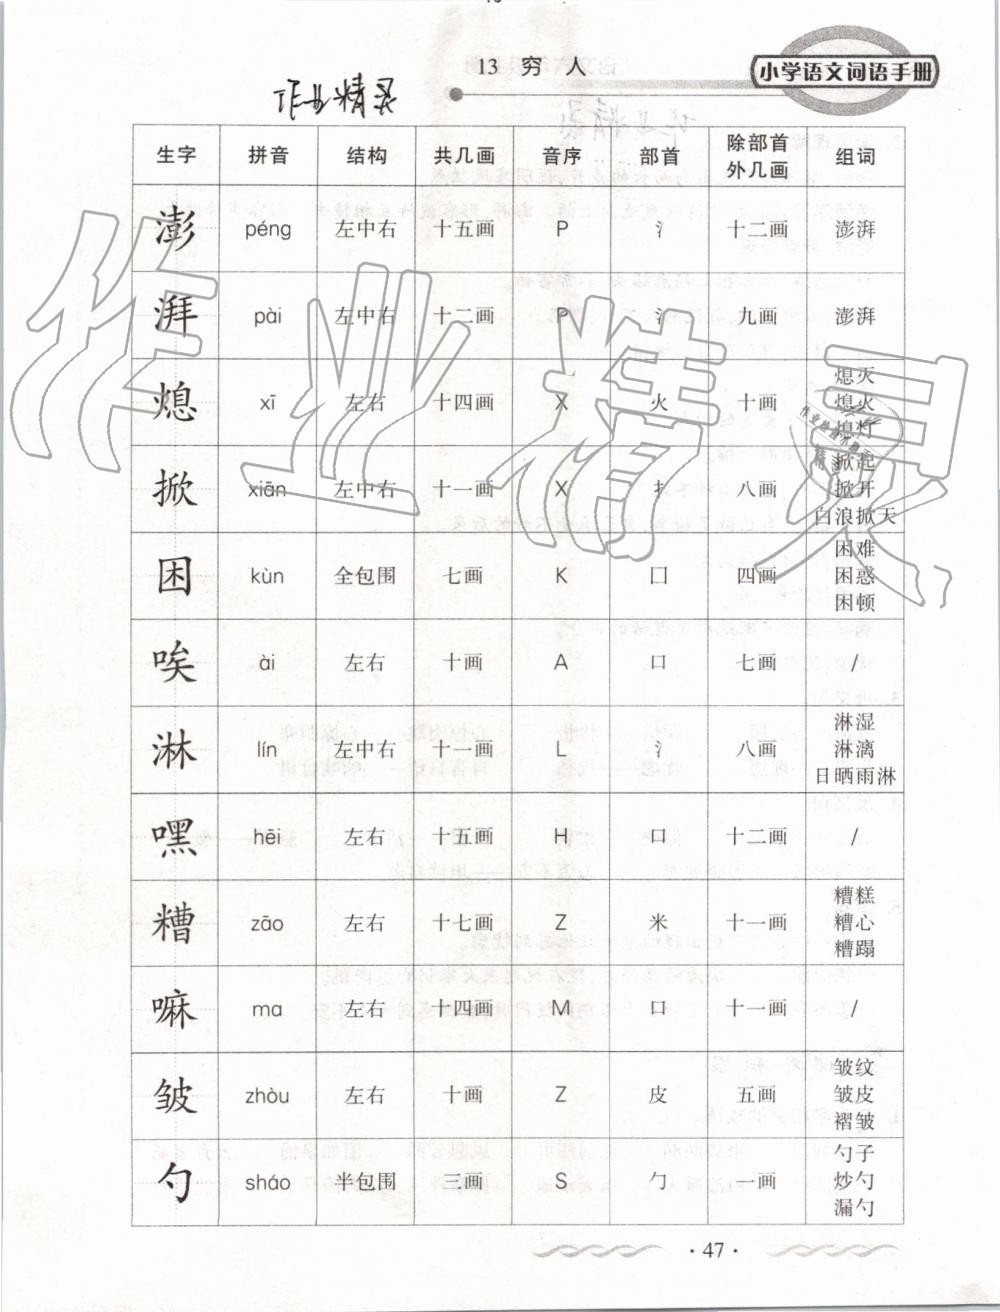 13 穷 人
小学语文词语手册
作业精灵
生字 拼音 结构 共几画 音序 部首 除部首外几画 组词
澎 péng 左中右 十五画 P 氵 十二画 澎湃
湃 pài 左中右 十二画 P 氵 九画 澎湃
熄 xī 左右 十四画 X 火 十画 熄灭 熄火 熄灯
掀 xiān 左中右 十一画 X 扌 八画 掀起 掀开 白浪掀天
困 kùn 全包围 七画 K 囗 四画 困难 困惑 困顿
唉 ài 左右 十画 A 口 七画 /
淋 lín 左中右 十一画 L 氵 八画 淋湿 淋漓 日晒雨淋
嘿 hēi 左右 十五画 H 口 十二画 /
糟 zāo 左右 十七画 Z 米 十一画 糟糕 糟心 糟蹋
嘛 ma 左右 十四画 M 口 十一画 /
皱 zhòu 左右 十画 Z 皮 五画 皱纹 皱皮 褶皱
勺 sháo 半包围 三画 S 勹 一画 勺子 炒勺 漏勺
作业精灵
· 47 ·